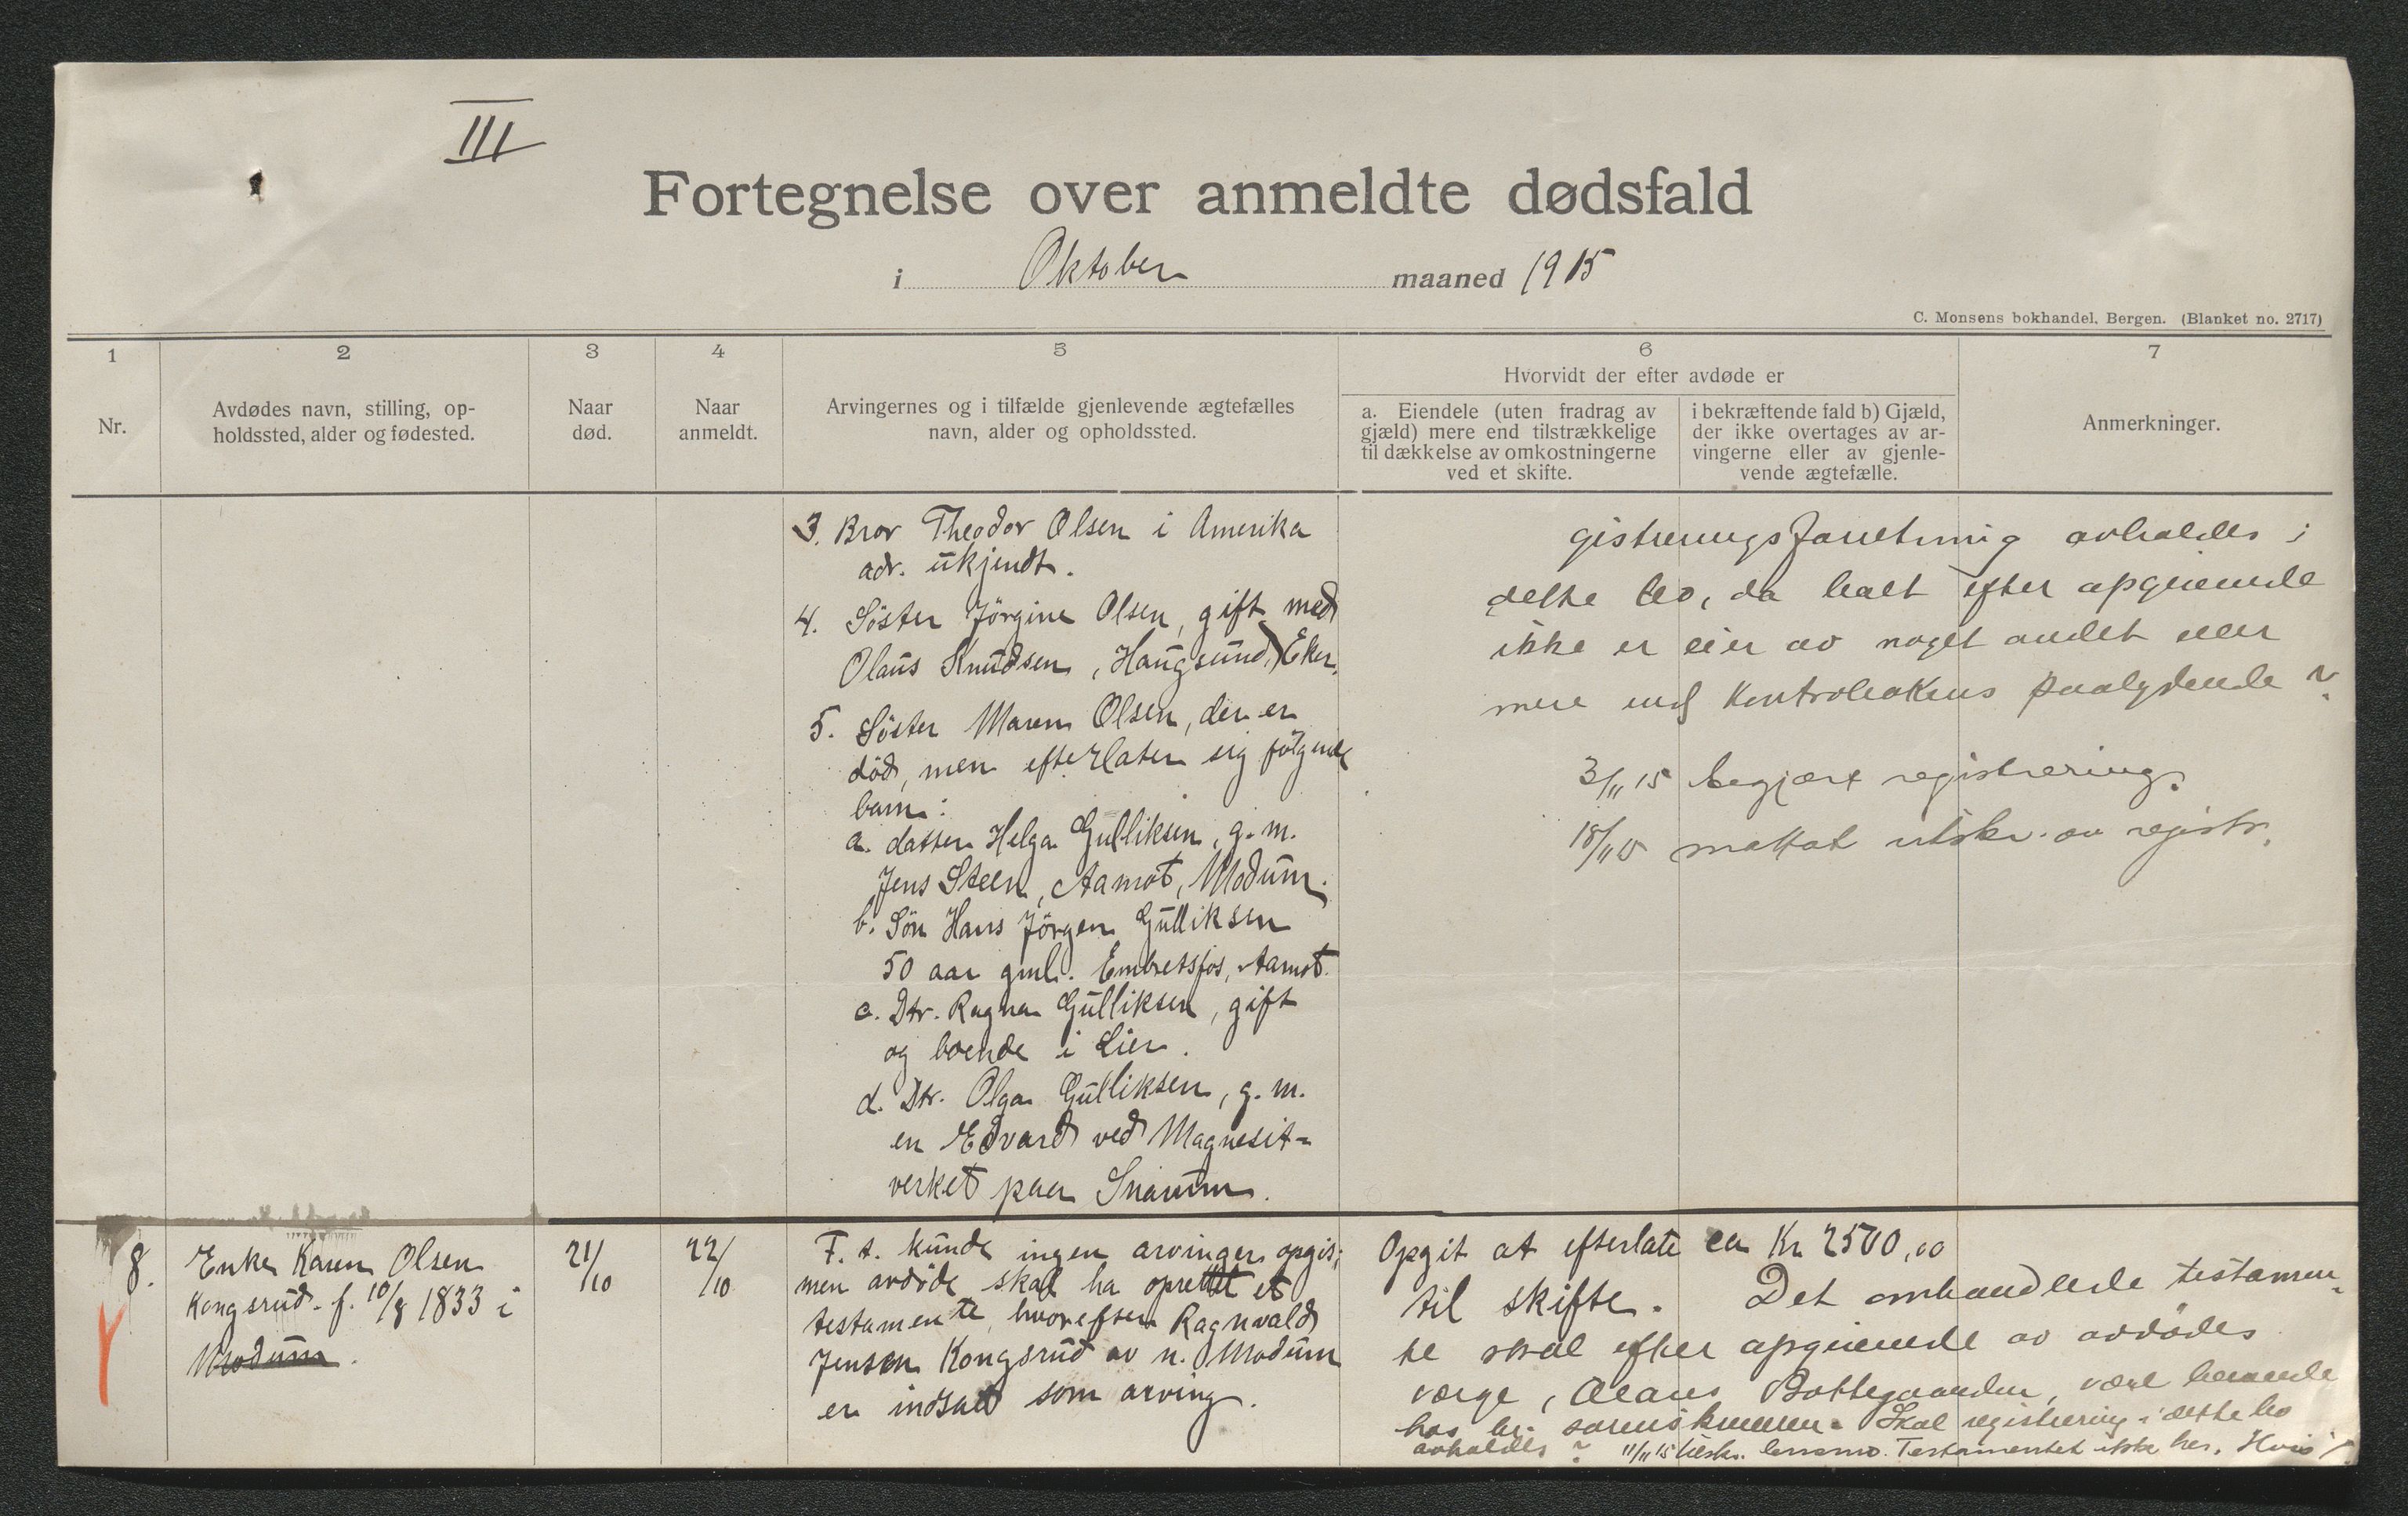 III
Fortegnelse over anmeldte dødsfald
i Oktober maaned 1915
C. Monsens bokhandel, Bergen. (Blanket no. 2717)
1
Nr.
2
Avdødes navn, stilling, op-
holdssted, alder og fødested.
3
Naar
død.
4
Naar
anmeldt.
5
Arvingernes og i tilfælde gjenlevende ægtefælles
navn, alder og opholdssted.
6
Hvorvidt der efter avdøde er
a. Eiendele (uten fradrag av
gjæld) mere end tilstrækkelige
til dækkelse av omkostningerne
ved et skifte.
i bekræftende fald b) Gjæld,
der ikke overtages av ar-
vingerne eller av gjenle-
vende ægtefælle.
7
Anmerkninger.
3. Bror Theodor Olsen i Amerika
adr. ukjendt.
4. Söster Jörgine Olsen, gift med
Olaus Knudsen, Haugsund, Eker.
5. Söster Maren Olsen, der er
död, men efterlater sig fölgende
barn:
a. datter Helga Gulliksen, g. m.
Jens Steen, Aamot, Modum.
b. Sön Hans Jörgen Gulliksen
50 aar gml. Embretsfos, Aamot.
c. Dtr. Ragna Gulliksen, gift
og boende i Lier.
d. Dtr. Olga Gulliksen, g. m.
en Edvard ved Magnesit-
verket paa Snarum.
gistreringsforretning avholdes i
dette bo, da efter opgivende
ikke er eier av noget andet eller
mere end paalydende ?
3/11 15 begjært registrering.
18/11 15 mottat utskr. av registr.
8.
Enke Karen Olsen
Kongsrud. f. 10/8 1833 i
Modum.
21/10
22/10
F. t. kunde ingen arvinger opgis;
men avdöde skal ha oprettet et
testamente, hvorefter Ragnvald
Jensen Kongsrud av n. Modum
er indsat som arving.
Opgit at efterlate ca Kr 2500,00
til skifte. Det omhandlede testamen-
te skal efter opgivende av avdödes
værge, Bottegaarden, være beroende
hos hr. sorenskriveren. Skal registrering i dette bo
avholdes ? 11/11 15 Testamentet ikke her. Hvis